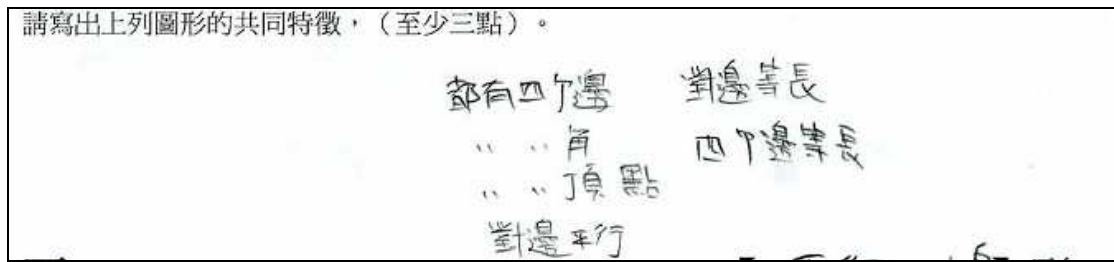 請寫出上列圖形的共同特徵，（至少三點）。
都有四个邊　對邊等長
〃 〃 角　四个邊等長
〃 〃 頂點
對邊平行